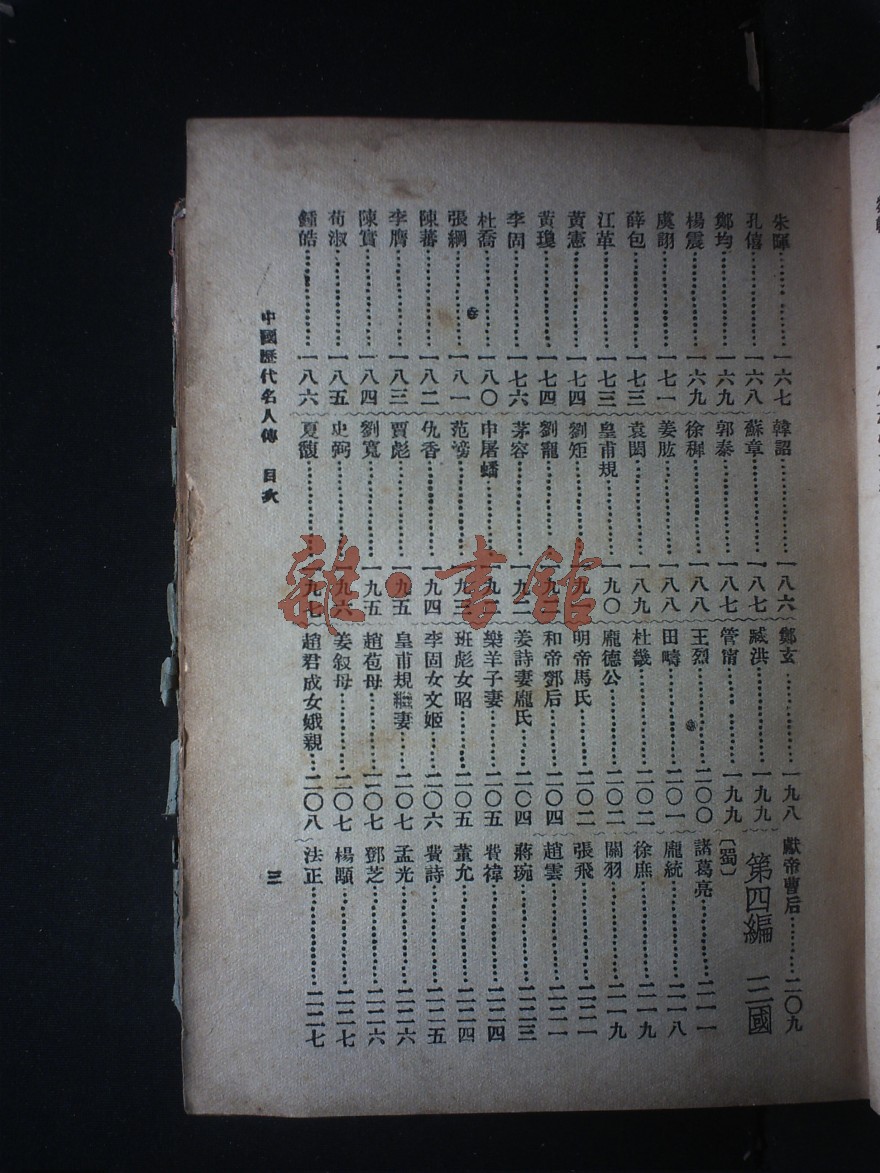 朱暉……一六七
孔僖……一六八
鄭均……一六九
楊震……一六九
虞詡……一七一
薛包……一七三
江革……一七三
黃憲……一七四
黃瓊……一七四
李固……一七六
杜喬……一八〇
張綱……一八一
陳蕃……一八二
李膺……一八三
陳實……一八四
荀淑……一八五
鍾皓……一八六
韓韶……一八六
蘇章……一八七
郭泰……一八七
徐穉……一八八
姜肱……一八八
袁閎……一八九
皇甫規……一九〇
劉矩……一九一
劉寵……一九二
茅容……一九二
申屠蟠……一九二
范滂……一九三
仇香……一九四
賈彪……一九五
劉寬……一九五
史弼……一九六
夏馥……一九七
鄭玄……一九八
臧洪……一九九
管甯……一九九
王烈……二〇〇
田疇……二〇一
杜畿……二〇二
龐德公……二〇二
明帝馬氏……二〇二
和帝鄧后……二〇四
姜詩妻龐氏……二〇四
樂羊子妻……二〇五
班彪女昭……二〇五
李固女文姬……二〇六
皇甫規繼妻……二〇七
趙苞母……二〇七
姜叙母……二〇七
趙君成女娥親……二〇八
獻帝曹后……二〇九
第四編 三國
〔蜀〕
諸葛亮……二一一
龐統……二一八
徐庶……二一九
關羽……二一九
張飛……二二一
趙雲……二二一
蔣琬……二二三
費禕……二二四
董允……二二四
費詩……二二五
孟光……二二六
鄧芝……二二六
楊顒……二二七
法正……二二七
中國歷代名人傳 目次
三
雜·書館